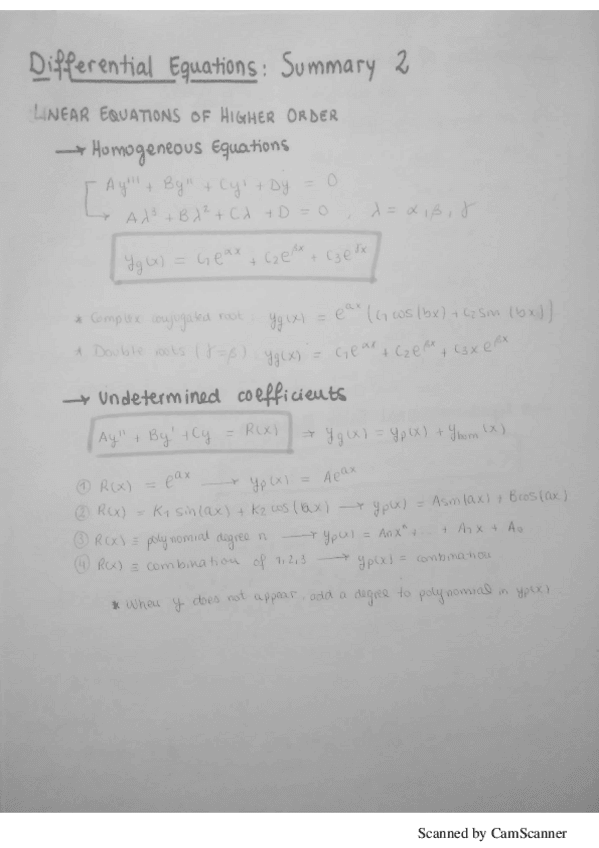 Differential Equations: Summary 2
LINEAR EQUATIONS OF HIGHER ORDER
→ Homogeneous Equations
Ay''' + By'' + Cy' + Dy = 0
→ Aλ³ + Bλ² + Cλ + D = 0, λ = α, β, γ
yg(x) = C₁e^αx + C₂e^βx + C₃e^γx
* Complex conjugated root: yg(x) = e^ax (C₁cos(bx) + C₂sin(bx))
* Double roots (γ=β): yg(x) = C₁e^αx + C₂e^βx + C₃xe^βx
→ Undetermined coefficients
Ay'' + By' + Cy = R(x) ⇒ yg(x) = yp(x) + yhom(x)
① R(x) = e^ax → yp(x) = Ae^ax
② R(x) = K₁ sin(ax) + K₂ cos(ax) → yp(x) = Asin(ax) + Bcos(ax)
③ R(x) ≡ polynomial degree n → yp(x) = Anxⁿ + ... + A₁x + A₀
④ R(x) ≡ combination of 1,2,3 → yp(x) = combination
* When y does not appear, add a degree to polynomial in yp(x)
Scanned by CamScanner